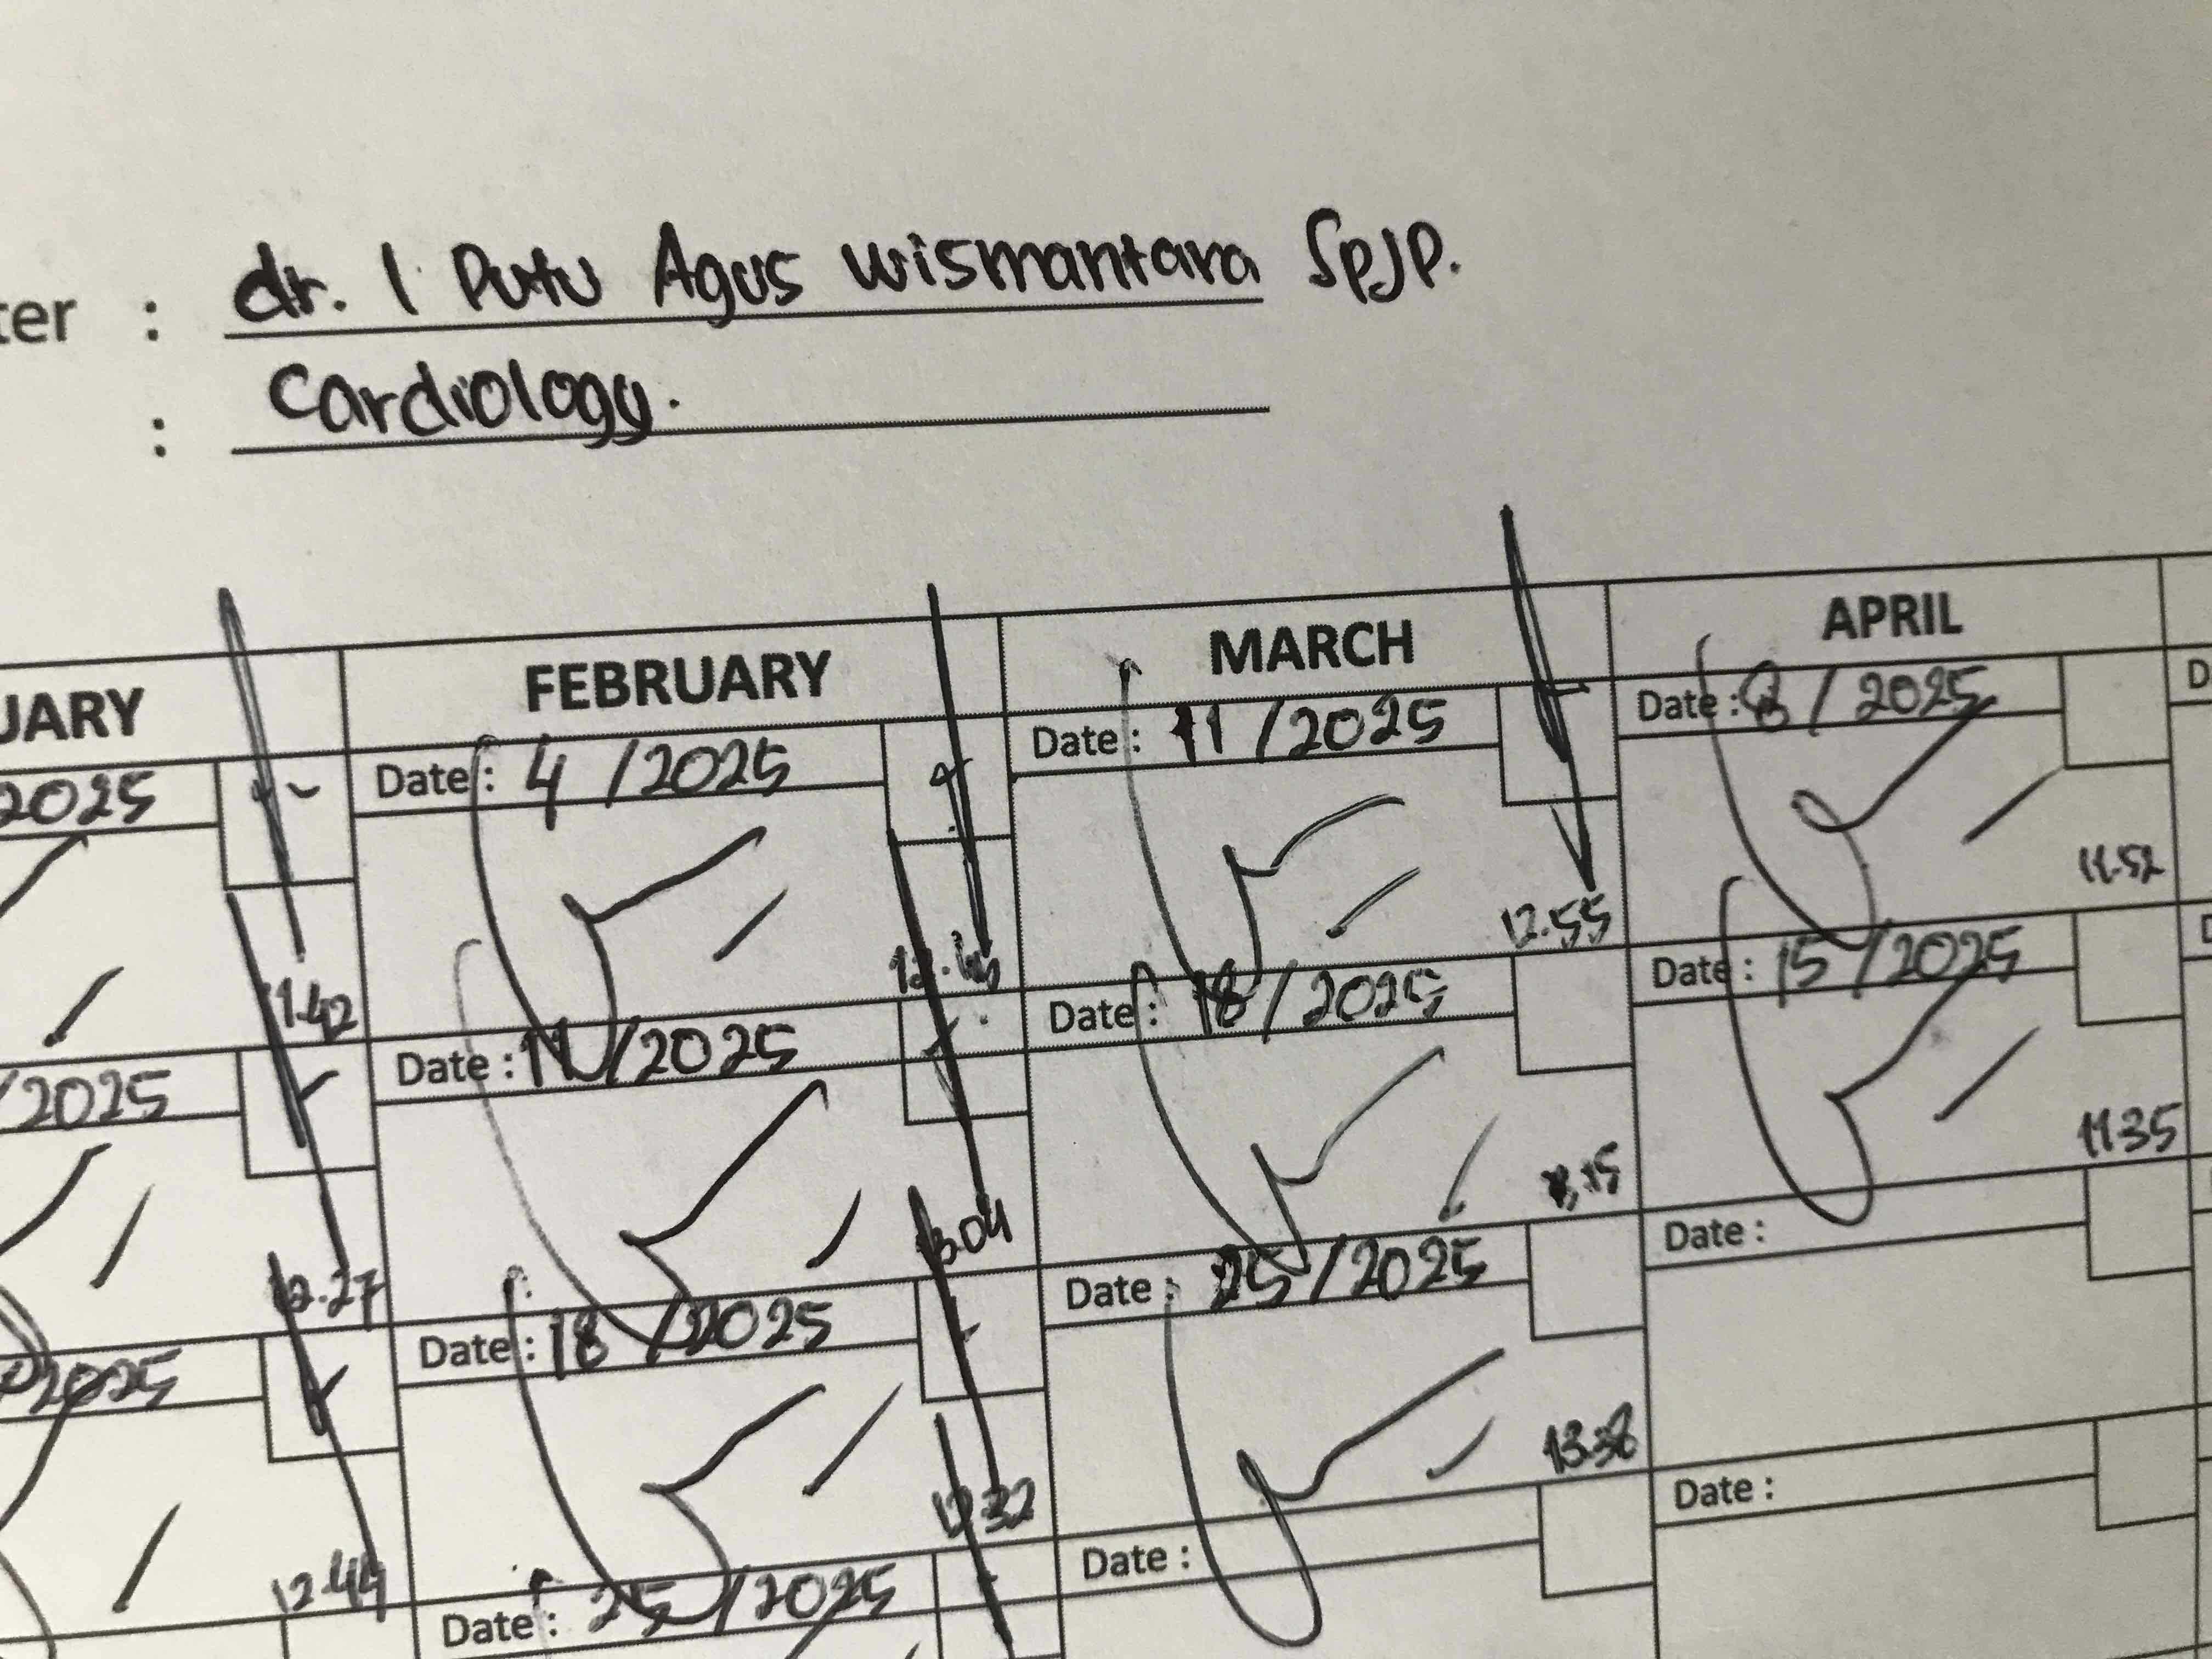 ter : dr. I Putu Agus Wismantara SpJP.
: Cardiology.
UARY FEBRUARY MARCH APRIL
2025 Date : 4 /2025 Date : 11 /2025 Date : 8 / 2025 D
1.42 12.55 11.52
/2025 Date : 11/2025 Date : 18/2025 Date : 15/2025 D
12.27 13.04 11.35
2025 Date : 18 /2025 Date : 25/2025 Date :
12.44 12.32 13.38
Date : 25 /2025 Date : Date :